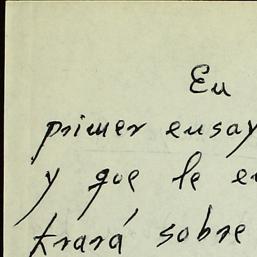 En
primer ensay
y que le en
trará sobre